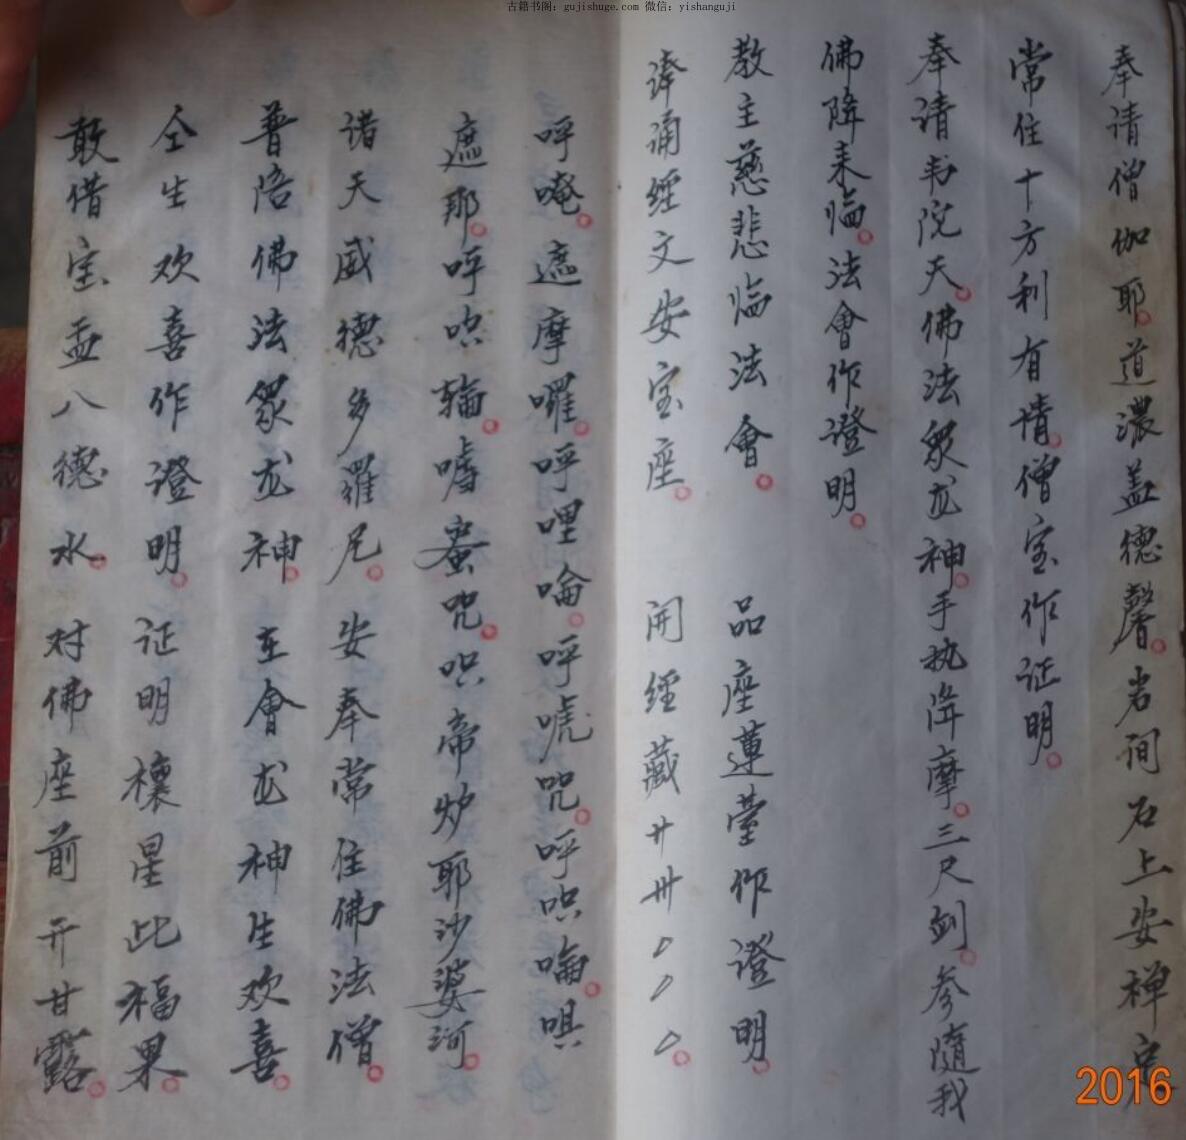 古籍书阁：gujishuge.com 微信：yishanguji
奉请僧伽耶。道濃盖德馨。岩间石上安禅定
常住十方利有情。僧宝作证明。
奉请韦院天。佛法眾龙神。手执降摩。三尺剑。参隨我
佛降来临。法會作證明。
教主慈悲临法會。 品座蓮臺作證明。
諷诵經文安宝座。 開經藏廾卅
呼唵。遮摩囉。呼哩唵。呼唬咒。呼吹噏。唄
遮那。呼吹輪。嚧蚕咒。吹帝炉耶沙婆诃。
诸天威德多羅尼。安奉常住佛法僧。
普陪佛法眾龙神。在會龙神生欢喜。
仝生欢喜作證明。证明禳星此福果。
敢借宝盂八德水。对佛座前开甘露。
2016